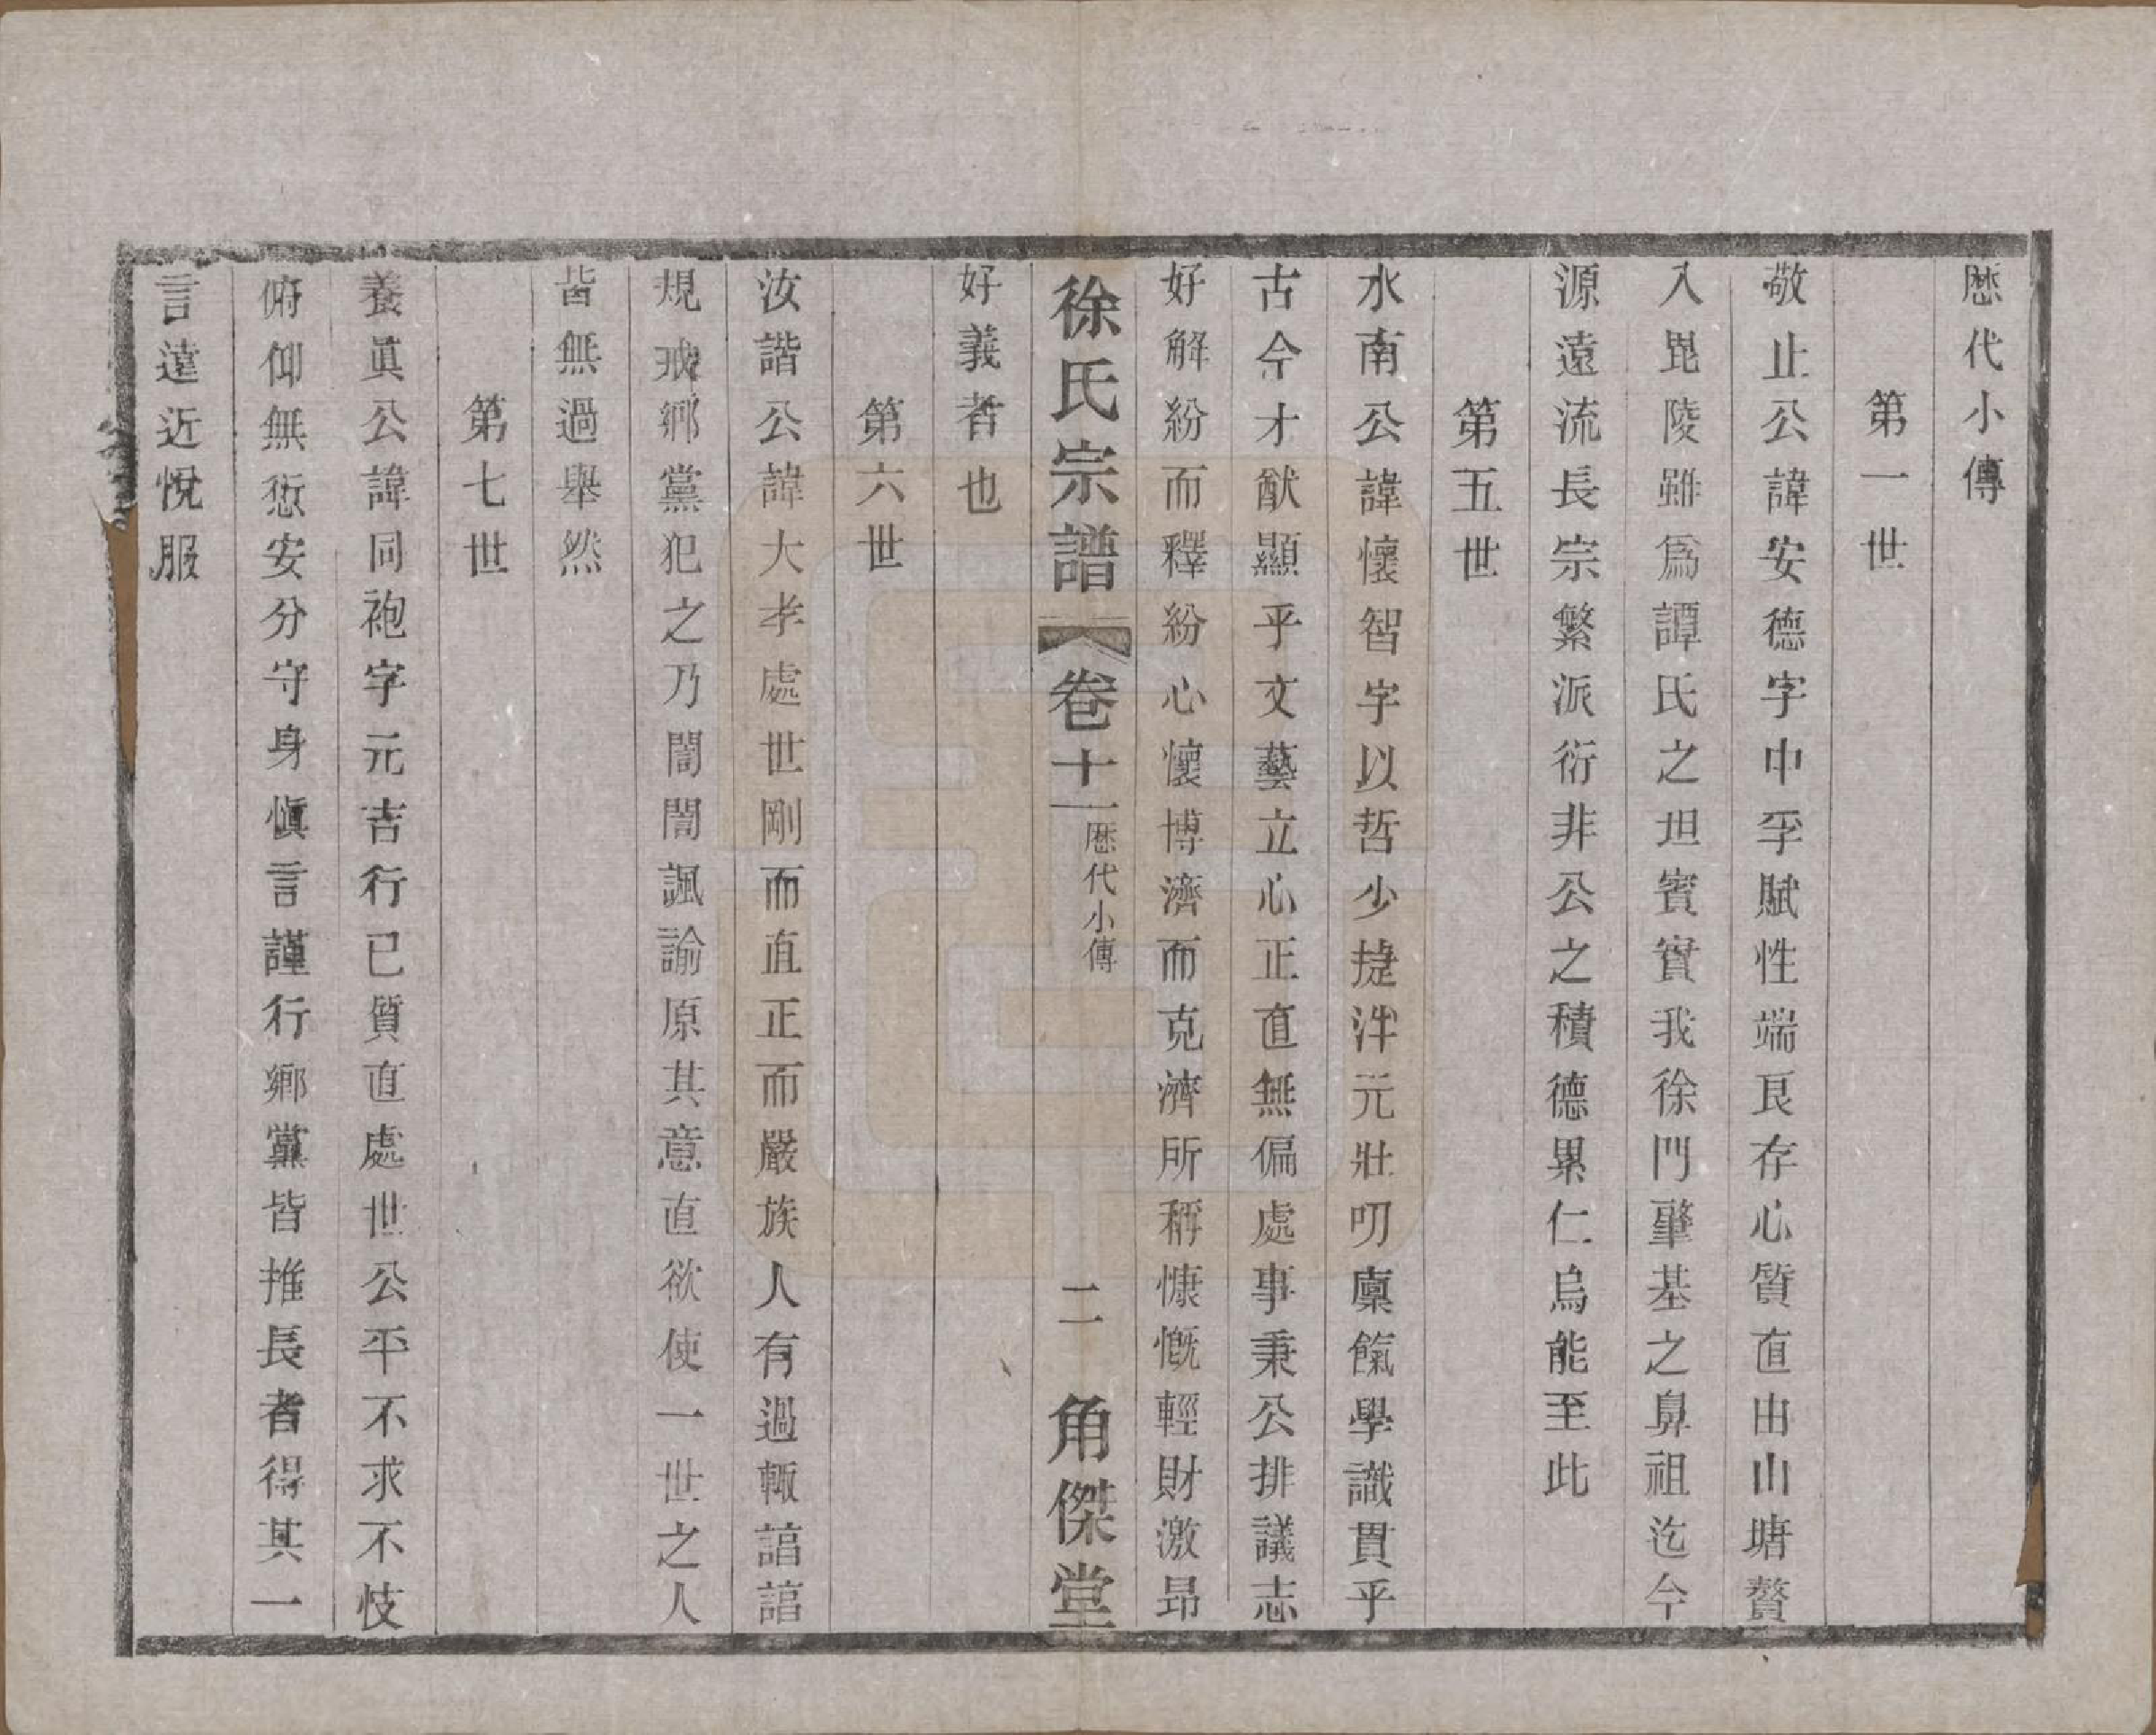 歷代小傳
第一世
敬止公諱安德字中孚賦性端良存心質直由山塘贅
入毘陵雖爲譚氏之坦賓實我徐門肇基之鼻祖迄今
源遠流長宗繁派衍非公之積德累仁烏能至此
第五世
水南公諱懷智字以哲少捷泮元壯叨廩餼學識貫乎
古今才猷顯乎文藝立心正直無偏處事秉公排議志
好解紛而釋紛心懷博濟而克濟所稱慷慨輕財激昂
徐氏宗譜
卷十一
歷代小傳
二
角傑堂
好義者也
第六世
汝諧公諱大孝處世剛而直正而嚴族人有過輒諳諳
規戒鄉黨犯之乃誾誾諷諭原其意直欲使一世之人
皆無過舉然
第七世
養眞公諱同袍字元吉行已質直處世公平不求不忮
俯仰無愆安分守身愼言謹行鄉黨皆推長者得其一
言遠近悅服